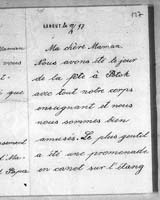 137
Ma chère Maman.
Nous avons été le jour
de la fête à
avec tout notre corps
enseignant et nous
nous sommes bien
amusés. Le plus gentil
a été une promenade
en canot sur l'étang
Maman
vous
que
et Papa